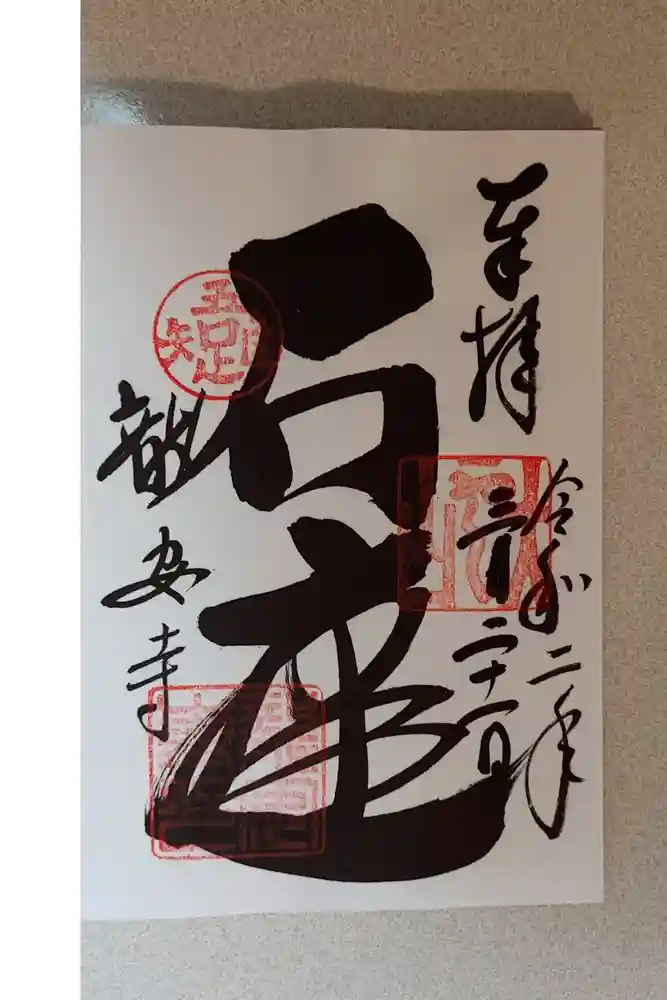 奉拝
令和二年
三月二十一日
石庭
吾唯足知
龍安寺